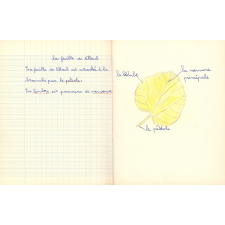 La feuille de tilleul
Une feuille de tilleul est attachée à la
branche par le pétiole.
Le limbe est parcouru de nervures
le limbe
la nervure
principale
le pétiole